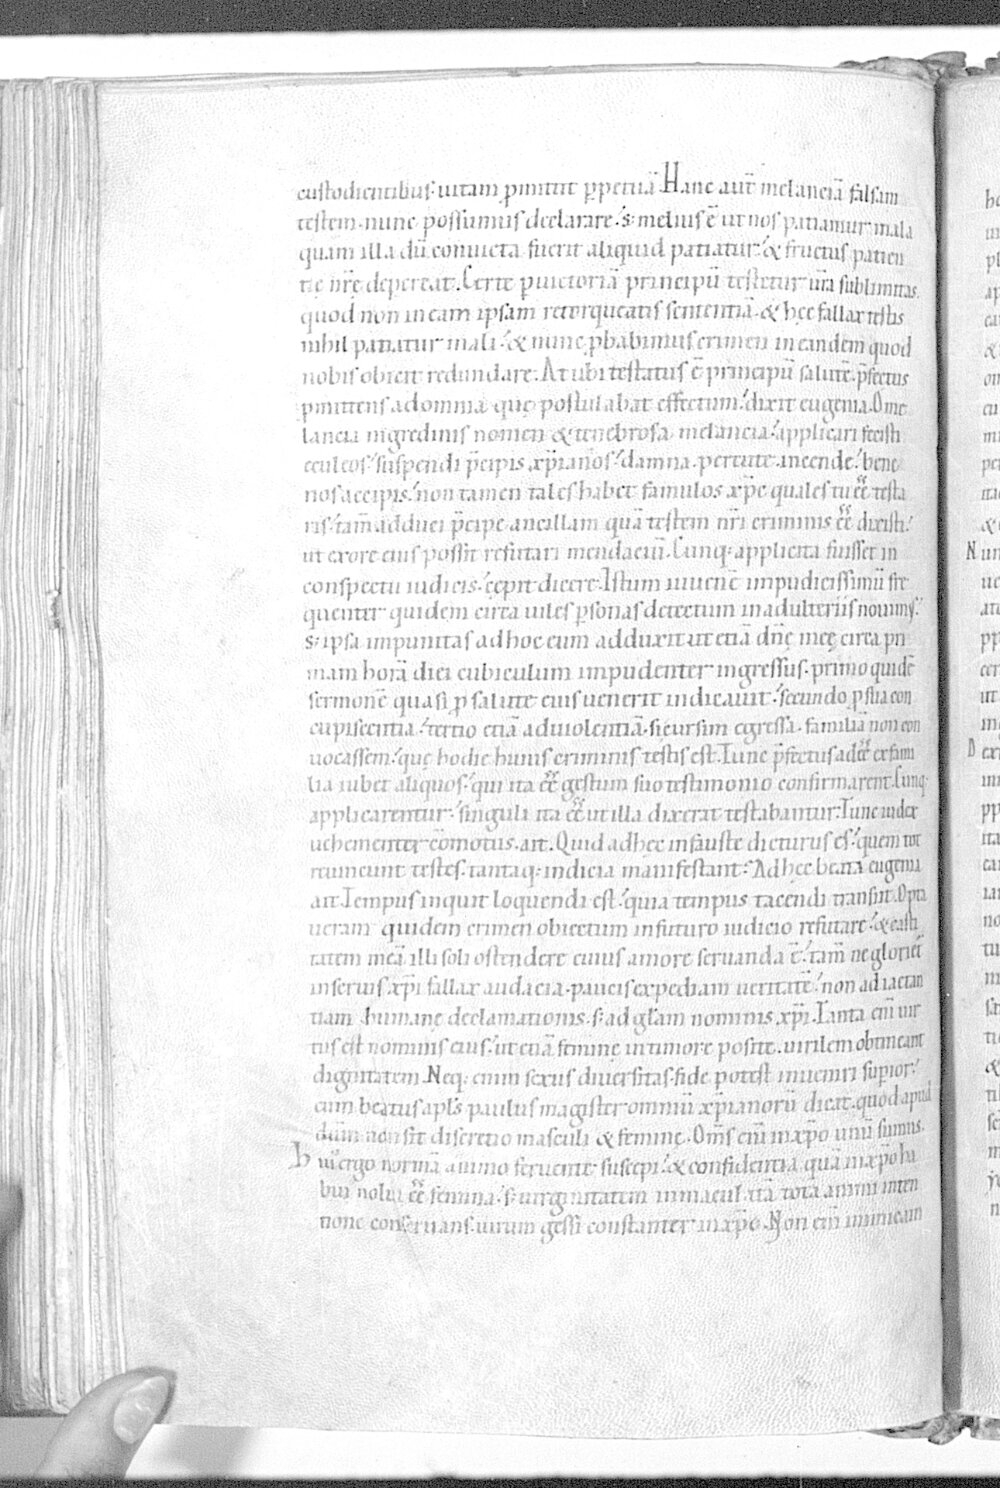 custodientibus· uitam ꝓmittit ꝑpetuā. Hanc aut̄ melanciā falsam
testem· nunc possumus declarare. s; melius ē ut nos patiamur mala
quam illa dū conuicta fuerit aliquid patiatur· & fructus patien
tie nr̄e depereat. Certe ꝑ uictoriā principū testetur ur̄a sublimitas
quod non in eam ipsam retorqueatis sententiā· & hęc fallax testis
nihil patiatur mali· & nunc ꝓbabimus crimen in eandem quod
nobis obicit redundare. At ubi testatus ē principū salutē· p̄fectus
ꝓmittens a domina quę postulabat effectum· dixit eugenia. O me
lancia ingredinis nomen & tenebrosa melancia· applicari fecisti
eculeos· suspendi p̄cipis xp̄ianos· damna· percute· incende· bene
nos accipis· non tamen tales habet famulos xp̄c quales tu ēē testa
ris· tam̄ adduci p̄cipe ancillam quā testem nr̄i criminis ēē dixisti·
ut ex ore eius possit refutari mendaciū. Cunq; applicita fuisset in
conspectu iudicis· cępit dicere. Istum iuuenē impudicissimū fre
quenter quidem circa uiles ꝑsonas detectum in adulteriis nouimus·
s; ipsa impunitas ad hoc eum adduxit ut etiā dn̄ę meę circa pri
mam horā diei cubiculum impudenter ingressus· primo quidē
sermonē quasi ꝓ salute eius uenerit indicauit· secundo ꝓ sua con
cupiscentia· tertio etiā ad uiolentiā· si cursim egressa· familiā non con
uocassem· quę hodie huius criminis testis est. Tunc p̄fectus adēē ex fami
lia iubet aliquos· qui ita ēē gestum suo testimonio confirmarent. Cunq;
applicarentur· singuli ita ēē ut illa dixerat testabantur. Tunc iudex
uehementer cōmotus· ait. Quid ad hęc infauste dicturus es· quem tot
reuincunt testes· tantaq; indicia manifestant· Ad hęc beata eugenia
ait. Tempus inquit loquendi est· quia tempus tacendi transiit. Opta
ueram quidem crimen obiectum in futuro iudicio refutare· & casti
tatem meā illi soli ostendere cuius amore seruanda ē· tam̄ ne glorieť
in seruis xp̄i fallax audacia· paucis expediam ueritatē· non ad iactan
tiam humanę declamationis· s; ad glām nominis xp̄i. Tanta eni̅ uir
tus est nominis eius· ut etiā femine in timore posite· uirilem obtineant
dignitatem. Neq; enim sexus diuersitas fide potest inueniri supior·
cum beatus apl̄s paulus magister omniū xp̄ianorū dicat· quod apud
dūm non sit discretio masculi & femine. Om̄s eni̅ in xp̄o unū sumus.
Huiꝰ ergo normā animo feruente suscepi· & confidentia quā in xp̄o ha
bui nolui ēē femina· s; uirginitatem inmaculatā tota animi inten
tione conseruans· uirum gessi constanter in xp̄o. Non eni̅ inimicam